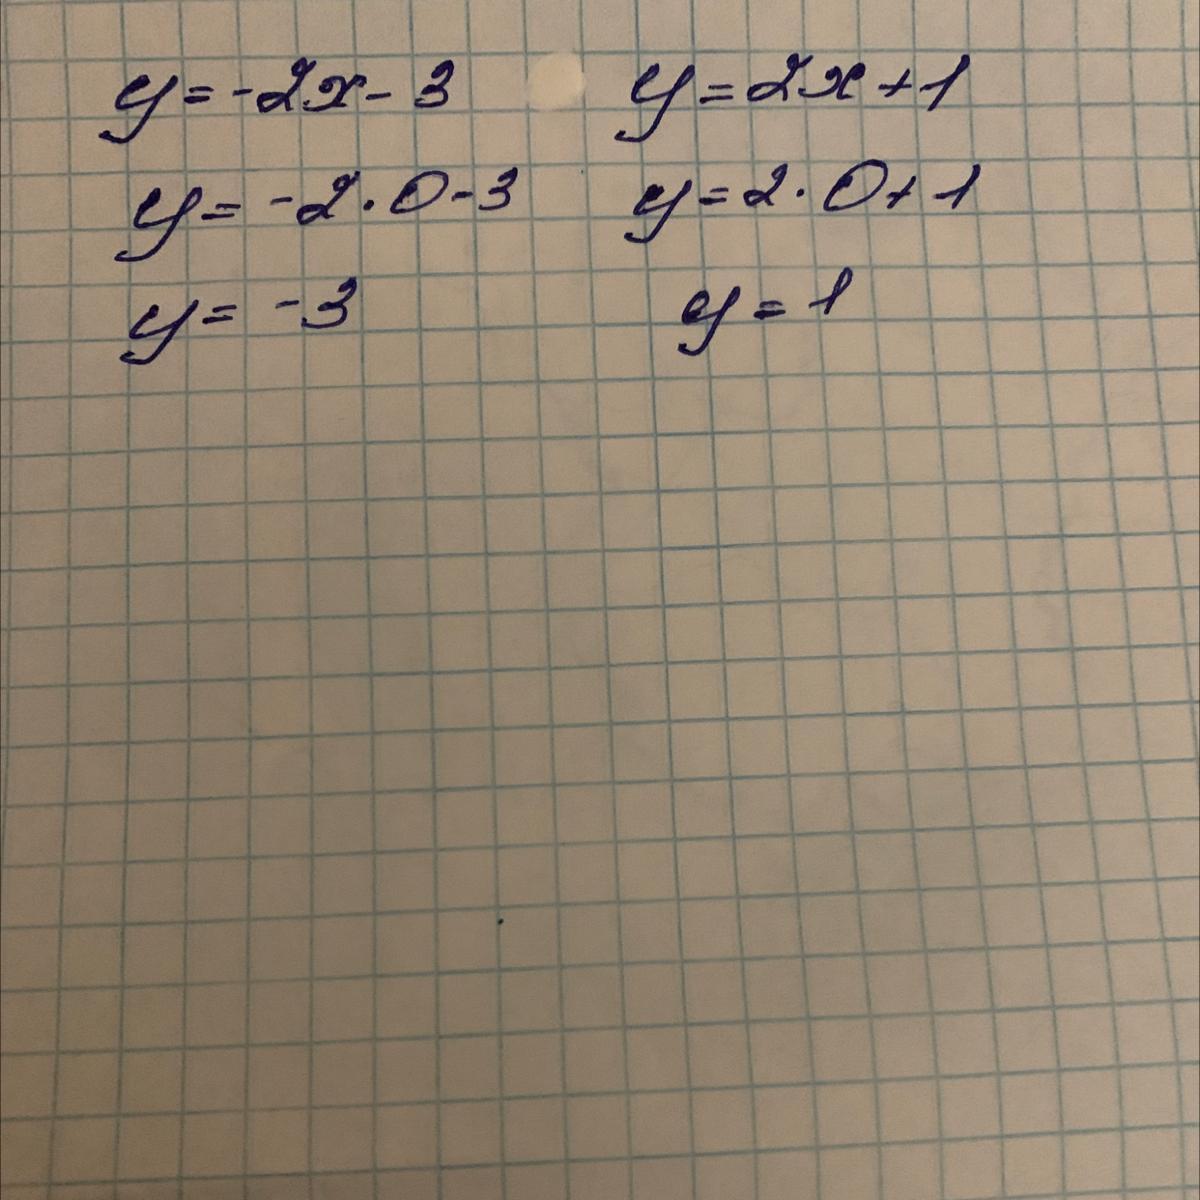 y = -2x - 3 y = 2x + 1
y = -2 · 0 - 3 y = 2 · 0 + 1
y = -3 y = 1